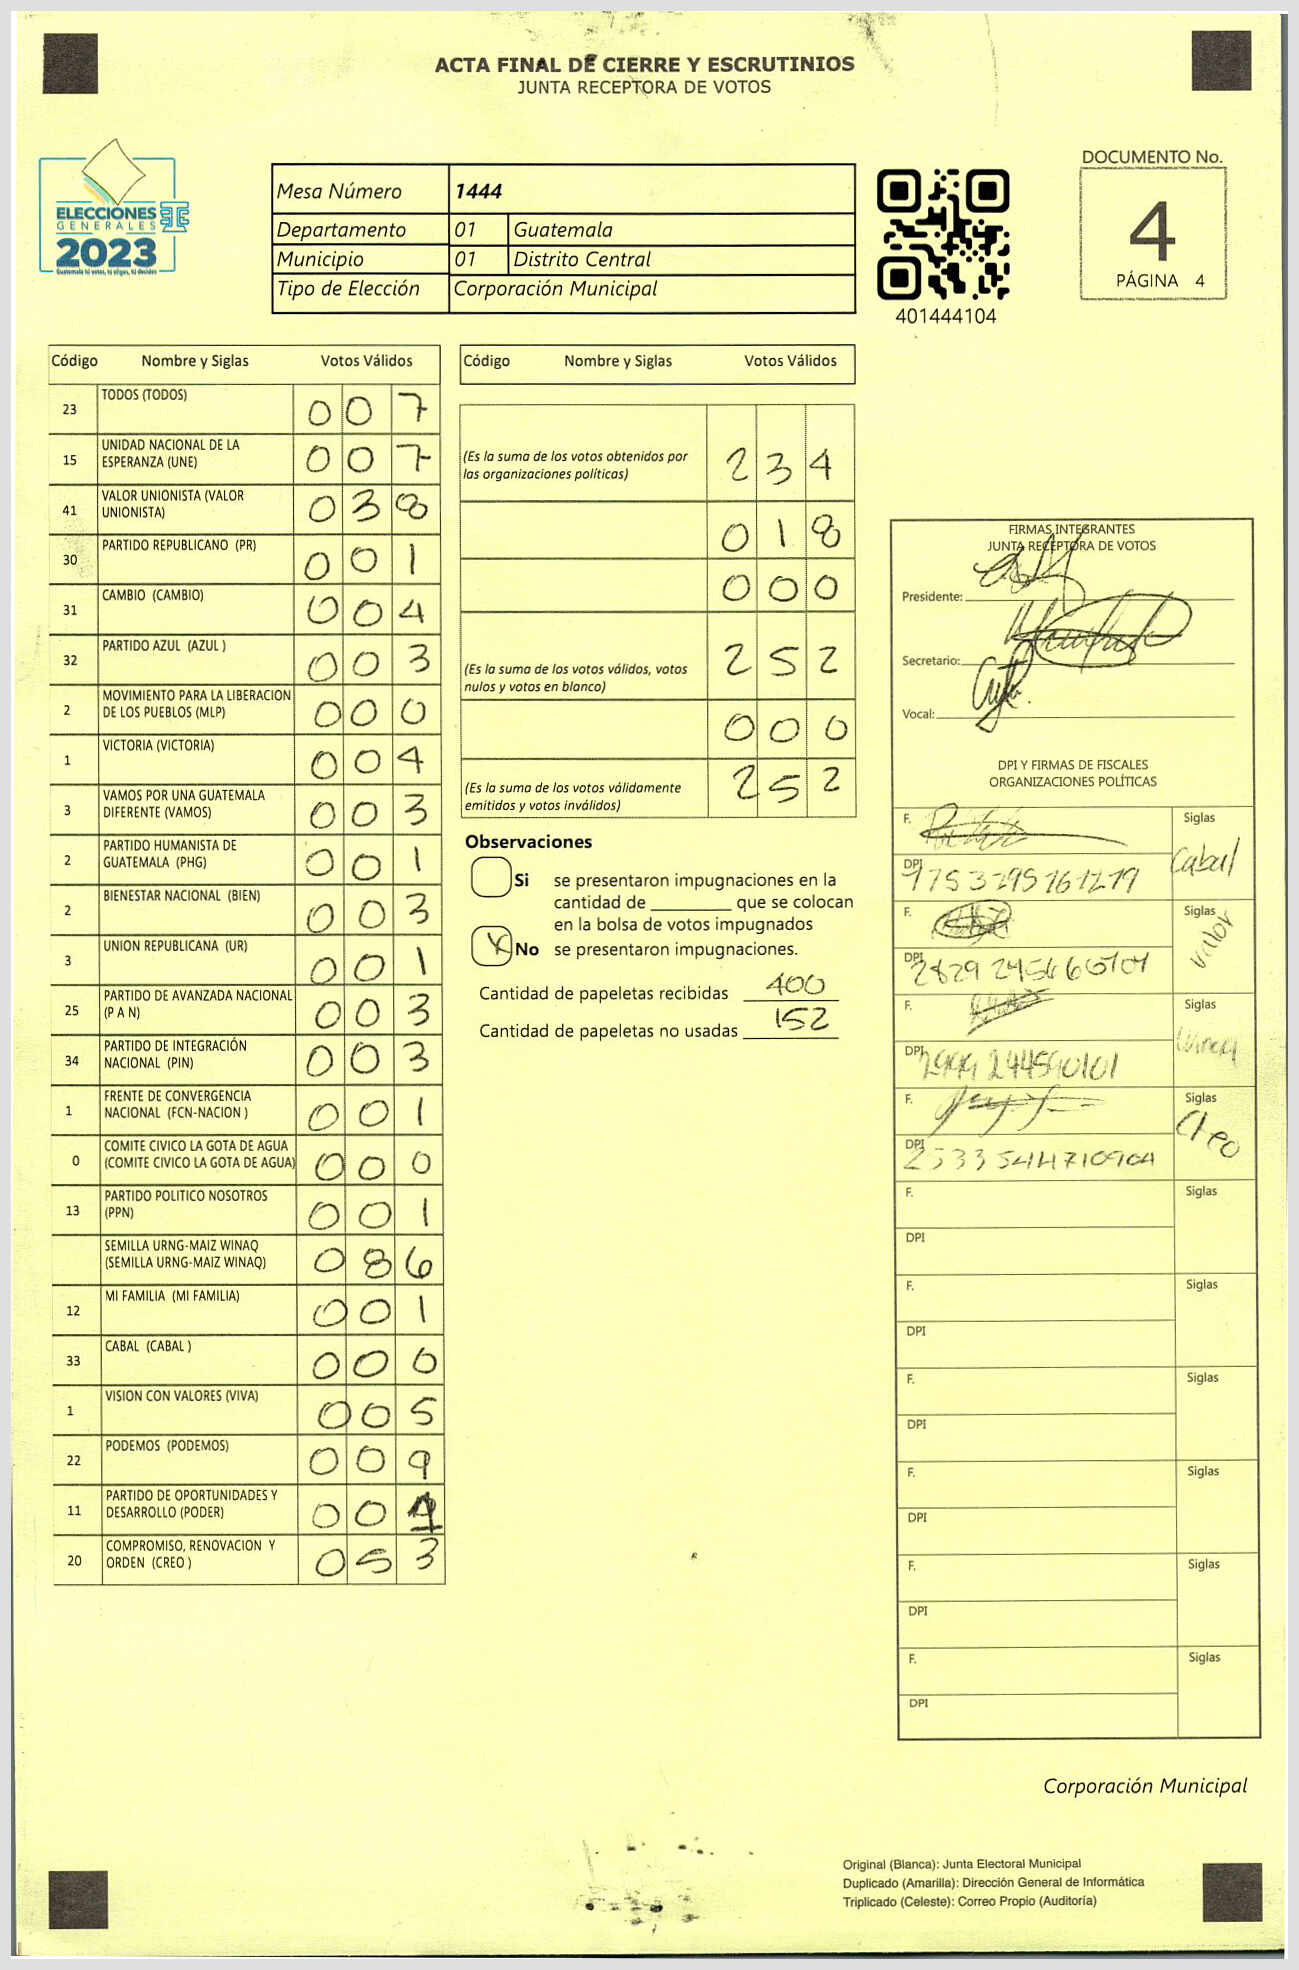 ACTA FINAL DE CIERRE Y ESCRUTINIOS
JUNTA RECEPTORA DE VOTOS
ELECCIONES
GENERALES
2023
Guatemala tú votas, tú eliges, tú decides
Mesa Número 1444
Departamento 01 Guatemala
Municipio 01 Distrito Central
Tipo de Elección Corporación Municipal
401444104
DOCUMENTO No.
4
PÁGINA 4
Código Nombre y Siglas Votos Válidos
23 TODOS (TODOS) 0 0 7
15 UNIDAD NACIONAL DE LA
ESPERANZA (UNE) 0 0 7
41 VALOR UNIONISTA (VALOR
UNIONISTA) 0 3 8
30 PARTIDO REPUBLICANO (PR) 0 0 1
31 CAMBIO (CAMBIO) 0 0 4
32 PARTIDO AZUL (AZUL ) 0 0 3
2 MOVIMIENTO PARA LA LIBERACION
DE LOS PUEBLOS (MLP) 0 0 0
1 VICTORIA (VICTORIA) 0 0 4
3 VAMOS POR UNA GUATEMALA
DIFERENTE (VAMOS) 0 0 3
2 PARTIDO HUMANISTA DE
GUATEMALA (PHG) 0 0 1
2 BIENESTAR NACIONAL (BIEN) 0 0 3
3 UNION REPUBLICANA (UR) 0 0 1
25 PARTIDO DE AVANZADA NACIONAL
(P A N) 0 0 3
34 PARTIDO DE INTEGRACIÓN
NACIONAL (PIN) 0 0 3
1 FRENTE DE CONVERGENCIA
NACIONAL (FCN-NACION ) 0 0 1
0 COMITE CIVICO LA GOTA DE AGUA
(COMITE CIVICO LA GOTA DE AGUA) 0 0 0
13 PARTIDO POLITICO NOSOTROS
(PPN) 0 0 1
SEMILLA URNG-MAIZ WINAQ
(SEMILLA URNG-MAIZ WINAQ) 0 8 6
12 MI FAMILIA (MI FAMILIA) 0 0 1
33 CABAL (CABAL ) 0 0 0
1 VISION CON VALORES (VIVA) 0 0 5
22 PODEMOS (PODEMOS) 0 0 9
11 PARTIDO DE OPORTUNIDADES Y
DESARROLLO (PODER) 0 0
20 COMPROMISO, RENOVACION Y
ORDEN (CREO ) 0 5 3
Código Nombre y Siglas Votos Válidos
(Es la suma de los votos obtenidos por
las organizaciones políticas) 2 3 4
0 1 8
0 0 0
(Es la suma de los votos válidos, votos
nulos y votos en blanco) 2 5 2
0 0 0
(Es la suma de los votos válidamente
emitidos y votos inválidos) 2 5 2
Observaciones
Si se presentaron impugnaciones en la
cantidad de ________ que se colocan
en la bolsa de votos impugnados
X No se presentaron impugnaciones.
Cantidad de papeletas recibidas 400
Cantidad de papeletas no usadas 152
FIRMAS INTEGRANTES
JUNTA RECEPTORA DE VOTOS
Presidente:
Secretario:
Vocal:
DPI Y FIRMAS DE FISCALES
ORGANIZACIONES POLÍTICAS
F. Siglas
Cabal
DPI
F. Siglas
Valor
DPI
F. Siglas
DPI 2999 244590101
F. Siglas
Creo
DPI
F. Siglas
DPI
F. Siglas
DPI
F. Siglas
DPI
F. Siglas
DPI
F. Siglas
DPI
F. Siglas
DPI
Corporación Municipal
Original (Blanca): Junta Electoral Municipal
Duplicado (Amarilla): Dirección General de Informática
Triplicado (Celeste): Correo Propio (Auditoría)